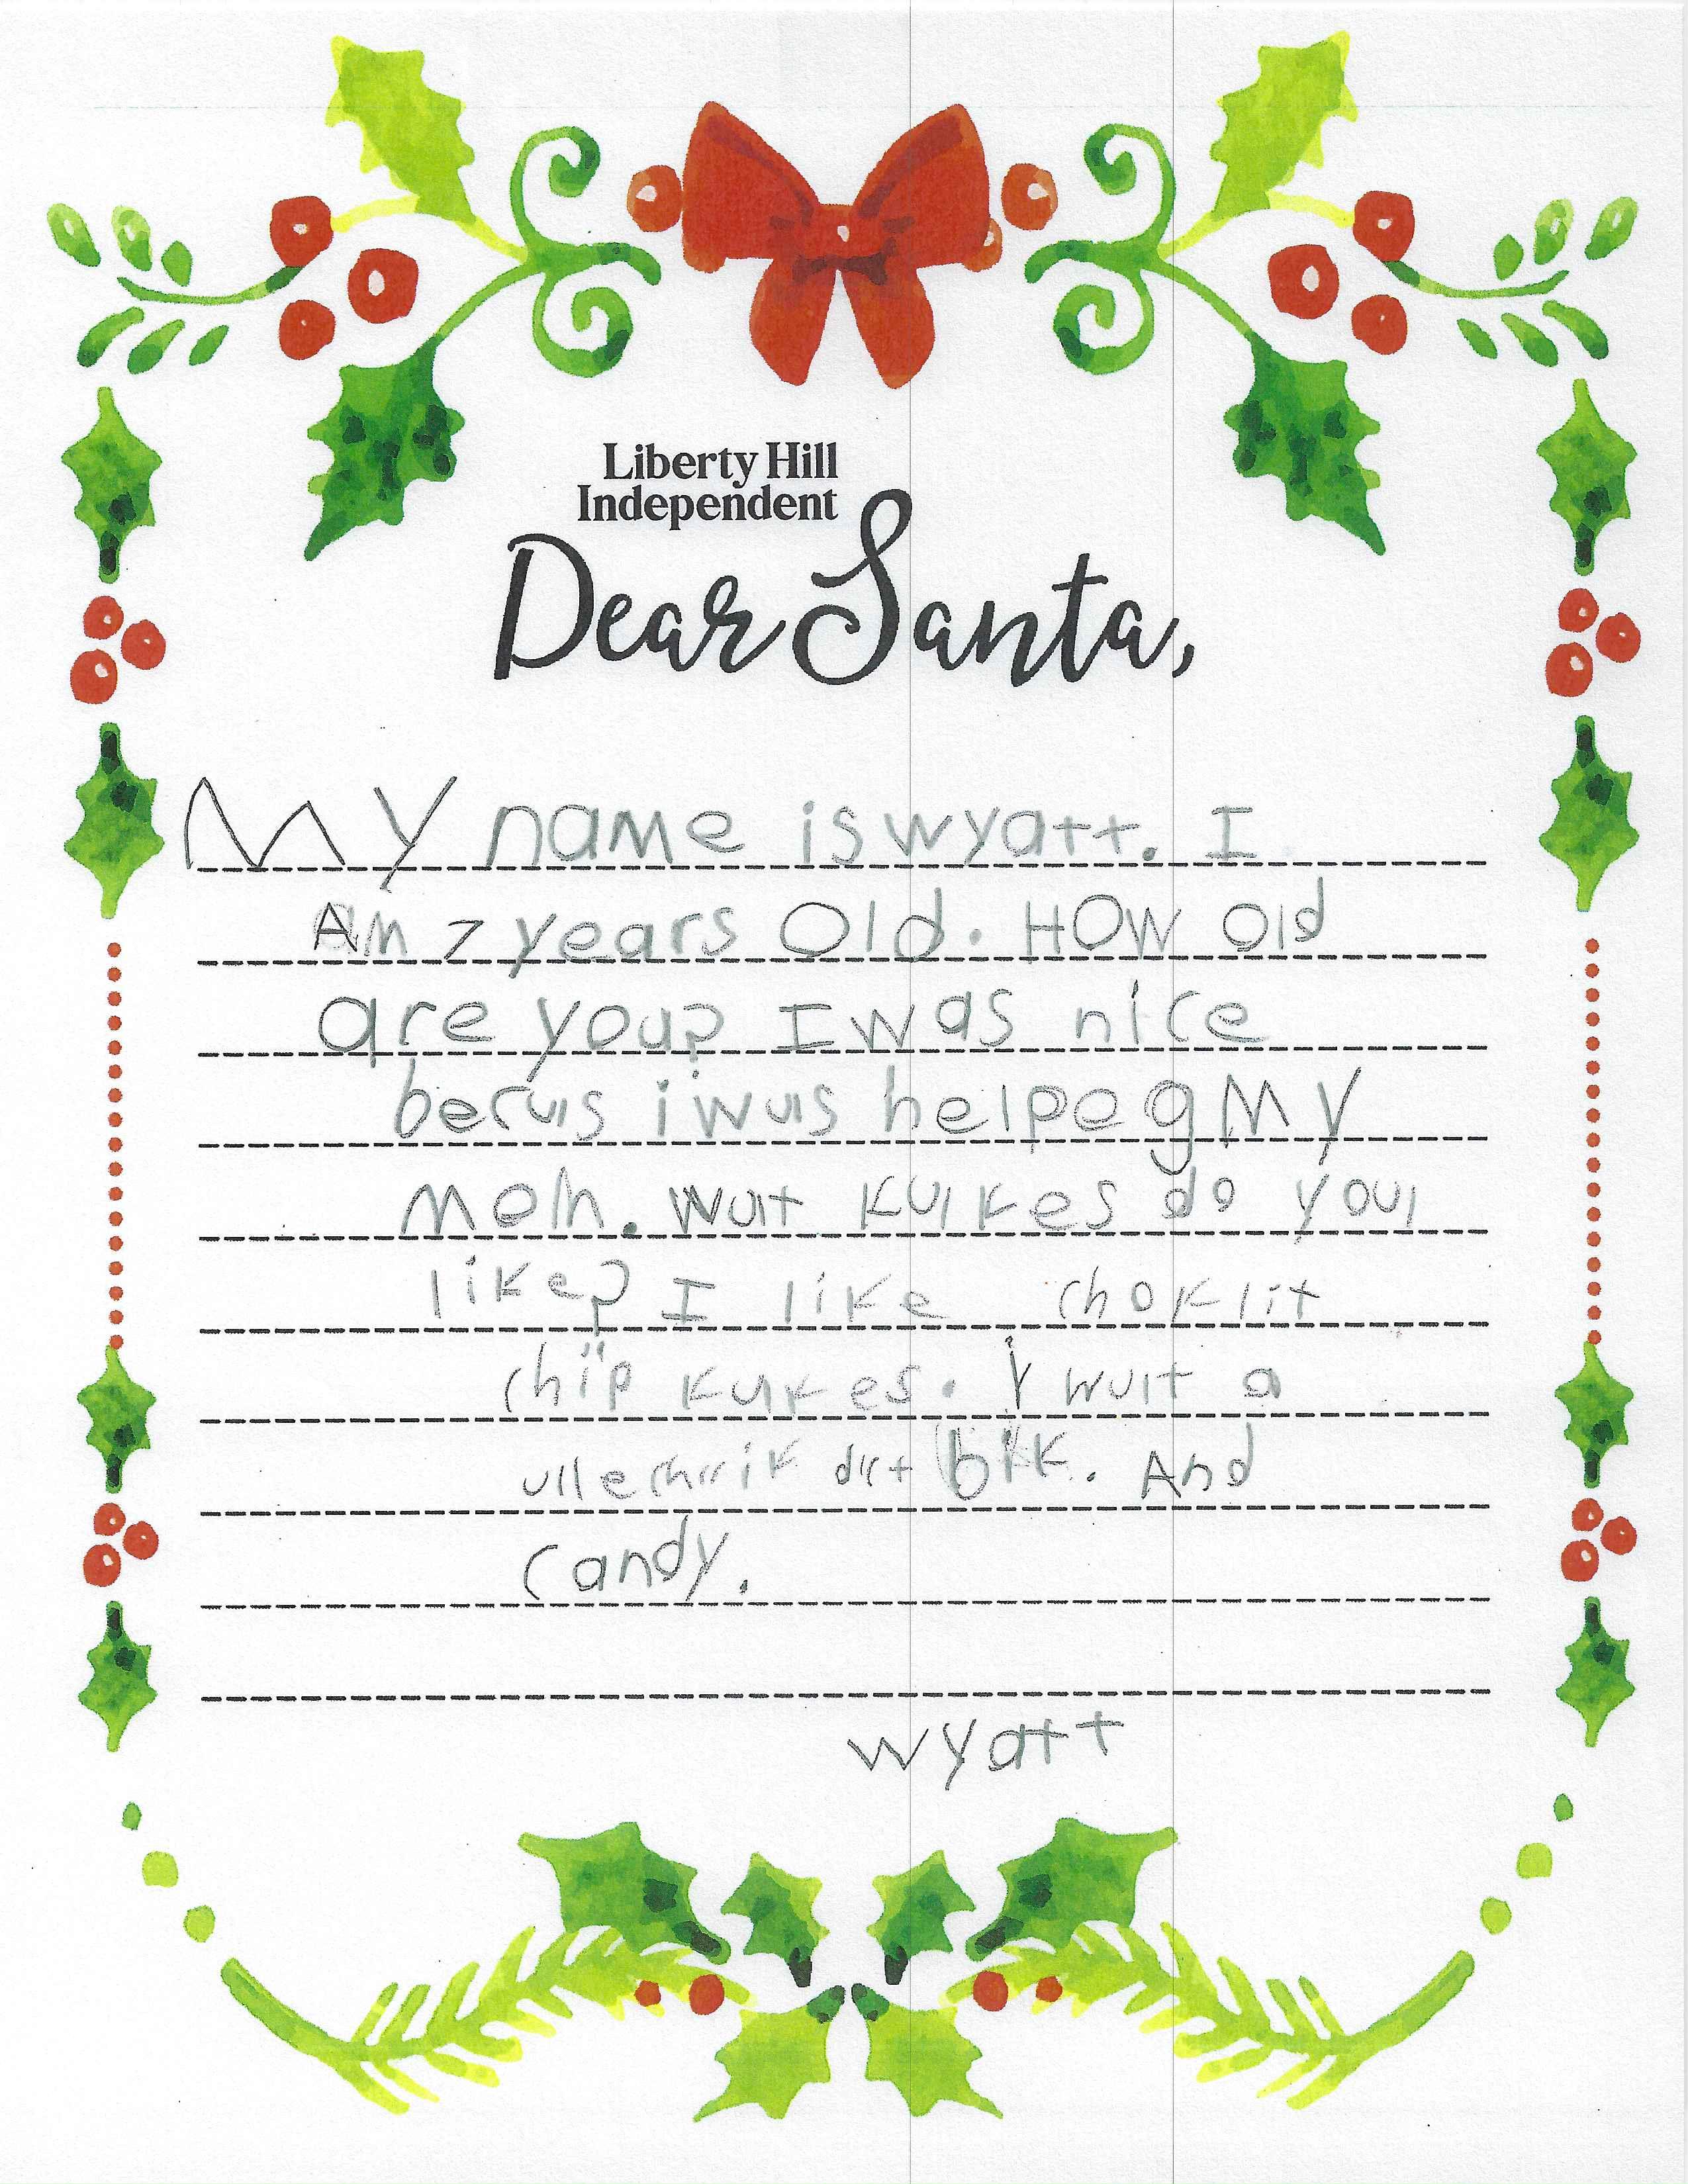 Liberty Hill
Independent
Dear Santa,
My name is wyatt. I
Am 7 years Old. HOW Old
are you? I was nice
becus i wus helpeg My
Mom. Wut kukes do you
like? I like choklit
chip kukes. I wut a
dirt bik. And
candy.
wyatt